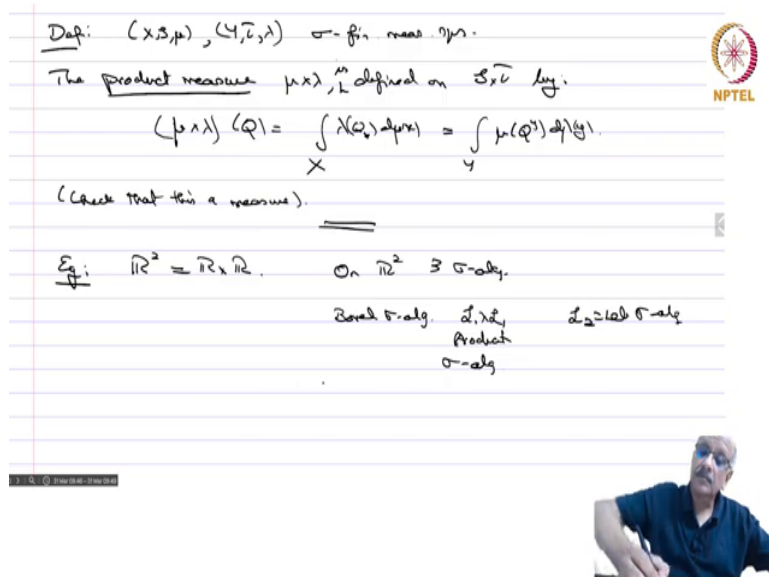 Def: (X, S, μ), (Y, τ, λ) σ-fin meas. sps.
NPTEL
The product measure μ×λ, is defined on S×τ by:
(μ×λ)(Q) = ∫_X λ(Q_x) dμ(x) = ∫_Y μ(Q^y) dλ(y).
(Check that this a measure).
Eg: ℝ² = ℝ×ℝ. On ℝ² 3 σ-alg.
Borel σ-alg. ℒ₁×ℒ₁ ℒ₂ = Leb σ-alg
Product
σ-alg